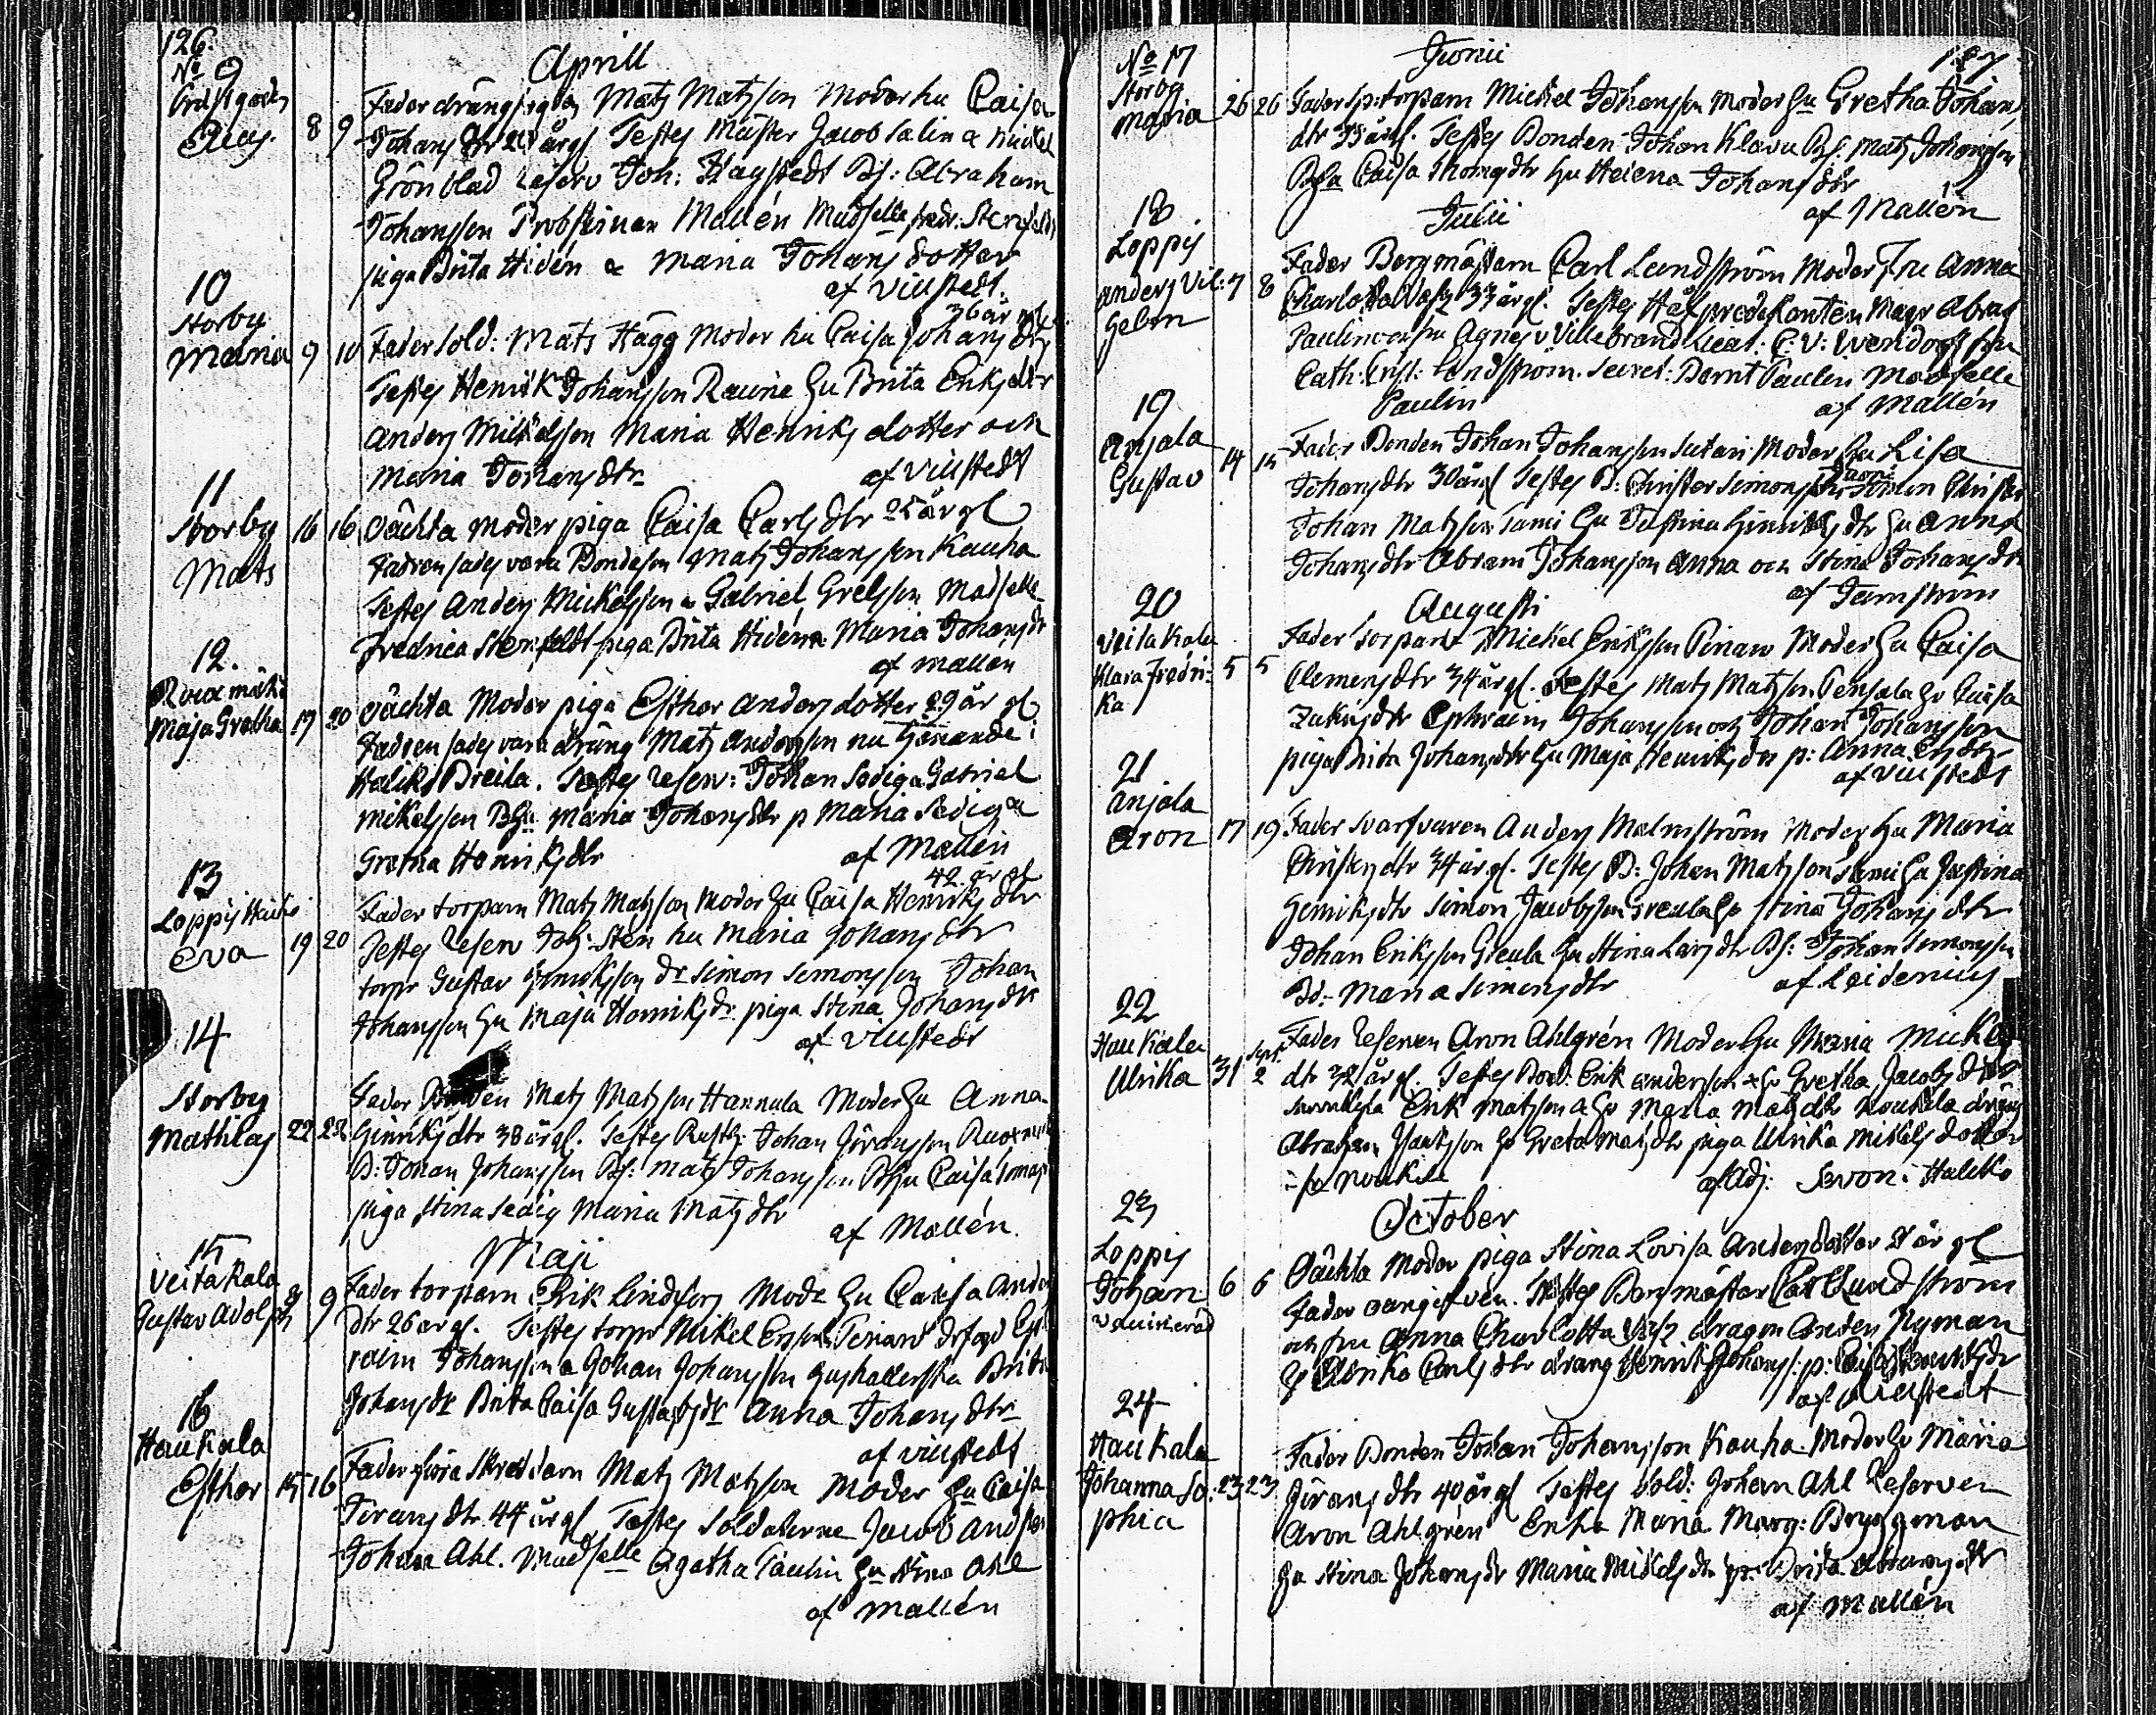 126.
Aprill
No 9
8 9 Fader Matz Matzson Moder hu Caisa
Johans dtr årgl Testes Mäster Jacob Salin a Mickel
Grönblad Reserv Joh: Hagstedt Bs: Abraham
Johansson Probstinan Mallén Madselle
piga Brita Hidén a Maria Johans dotter
af Villstedt.
10
Storby
Maria 9 10 Fader Sold: Mats Hägg Moder hu Caisa Johans dtr
36 år gl
Testes Henrik Johansson Hu Brita Eriks dtr
Anders Mickelsson Maria Henriks dotter och
Maria Johans dtr af Villstedt
11
Storby
Mats 16 16 Oächta Moder piga Caisa Carls dtr 25 år gl
Fadren sades vara Bondeson Matz Johansson Kauha
Testes Anders Mickelsson a Gabriel Grelsson Madselle
Fredrica Stenfeldt piga Brita Hidén a Maria Johans dr
af Mallén
12.
Maja Gretha 17 20 Oächta Moder piga Esther Anders dotter 29 år gl
Fadren sades vara dräng Matz Andersson nu tjenande i
Haliko Breila. Testes Reserv: Johan Sedig a Gabriel
Mikelsson Bhu Maria Johans dtr p Maria Sedig a
Gretha Henriks dtr af Mallén
13
Loppis
Eva 19 20 Fader torparn Matz Matzson Moder hu Caisa Henriks dtr
42 år gl
Testes Reserv Joh: Sten hu Maria Johans dtr
torpr Gustav Henriksson dr Simon Simonsson Johan
Johansson hu Maja Henriks dr piga Stina Johans dtr
af Villstedt
14
Storby
Mathias 22 22 Fader Bonden Matz Matzson Hannula Moder hu Anna
Hinriks dtr 38 år gl. Testes Rusth: Johan Göransson
B: Johan Johansson Bs: Matz Johansson Bhu Caisa
piga Stina Sedig Maria Matz dtr
af Mallén.
Maji
15
Veitakala
Gustav Adolph 8 9 Fader torparn Erik Lindfors Moder hu Caisa Anders
dtr 26 år gl. Testes torpr Mikel Ersson
Johansson a Johan Johansson Hushållerska Brita
Johans dr Brita Caisa Gustafs dr Anna Johans dtr
af Villstedt
16
Haukala
Esther 15 16 Fader Skreddarn Matz Matzson Moder hu Caisa
Jörans dtr 44 år gl Testes Soldaterne Jacob
Johan Ahl. Madselle Agatha Paulin hu Stina Ahl
af Mallén
127
Junii
No 17
Storby
Maria 26 26 Fader Sp:torparn Michel Johansson Moder hu Gretha Johans
dtr 33 år gl. Testes Bonden Johan Klavu Bs: Matz Johansson
Bhu Caisa Thomas dtr hu Helena Johans dtr
af Mallén
Julii
18
Loppis
Anders Vil:
helm 7 8 Fader Bergmästarn Carl Lundström Moder Fru Anna
Charlotta 33 år gl. Testes Häst predikanten Magr Abrah
Paulin Agnes v Villebrand Lieut: C: v: Wendorff fru
Cath: Crist: Lundström. Secret: Bernt Paulin Madselle
Paulin af Mallén
19
Anjala
Gustav 14 15 Fader Bonden Johan Johansson Sutari Moder hu Lisa
Johans dtr 30 år gl Testes B: Christer Simonsson
Johan Matzson Sami hu Justina Hinriks dtr hu Anna
Johans dtr Abram Johansson Anna och Stina Johans dr
af Ternström
Augusti
20
Veitakala
Klara Fredri:
ka 5 5 Fader torparn Mickel Eriksson Moder hu Caisa
Clemens dtr 34 år gl. Testes Matz Matzson hu Caisa
dtr Ephraim Johansson och Johan Johansson
piga Brita Johans dtr hu Maja Henriks dtr p: Anna
af Villstedt
21
Anjala
Aron 17 19 Fader Svarfvaren Anders Malmström Moder hu Maria
Christers dtr 34 år gl. Testes B: Johan Matzson Sami hu Justina
Henriks dtr Simon Jacobsson Greula hu Stina Johans dtr
Johan Eriksson Greula hu Stina Lars dtr Bs: Johan Simonsson
Bd: Maria Simons dtr af Leidenius
22
Haukala
Ulrika 31 Sept. 2 Fader Reserven Aron Ahlgrén Moder hu Maria Mickels
dtr 32 år gl. Testes Bond: Erik Andersson a hu Gretha Jacobs dtr
Erik Matzson a hu Maria Matz dtr Noukila dräng
Abraham Isaksson hu Greta Matz dtr piga Ulrika Mikels dotter
Noukila af Adj: Sevon. Haliko
23
October
Loppis
Johan 6 6
vaccinerad
Oächta Moder piga Stina Lovisa Anders dotter 21 år gl
Fader oangifven. Testes Bergmästar Carl Lundström
och fru Anna Charlotta dragon Anders Nyman
hu Ulrika Carls dtr dräng Henrik Johanss: p: Caisa
af Villstedt
24
Haukala
Johanna So:
phia 23 23 Fader Bonden Johan Johansson Kauha Moder hu Maria
Jörans dtr 40 år gl Testes Sold: Johan Ahl Reserven
Aron Ahlgrén Enka Maria Marg: Bryggman
hu Stina Johans dr Maria Mikels dr Brita Abrams dtr
af Mallén